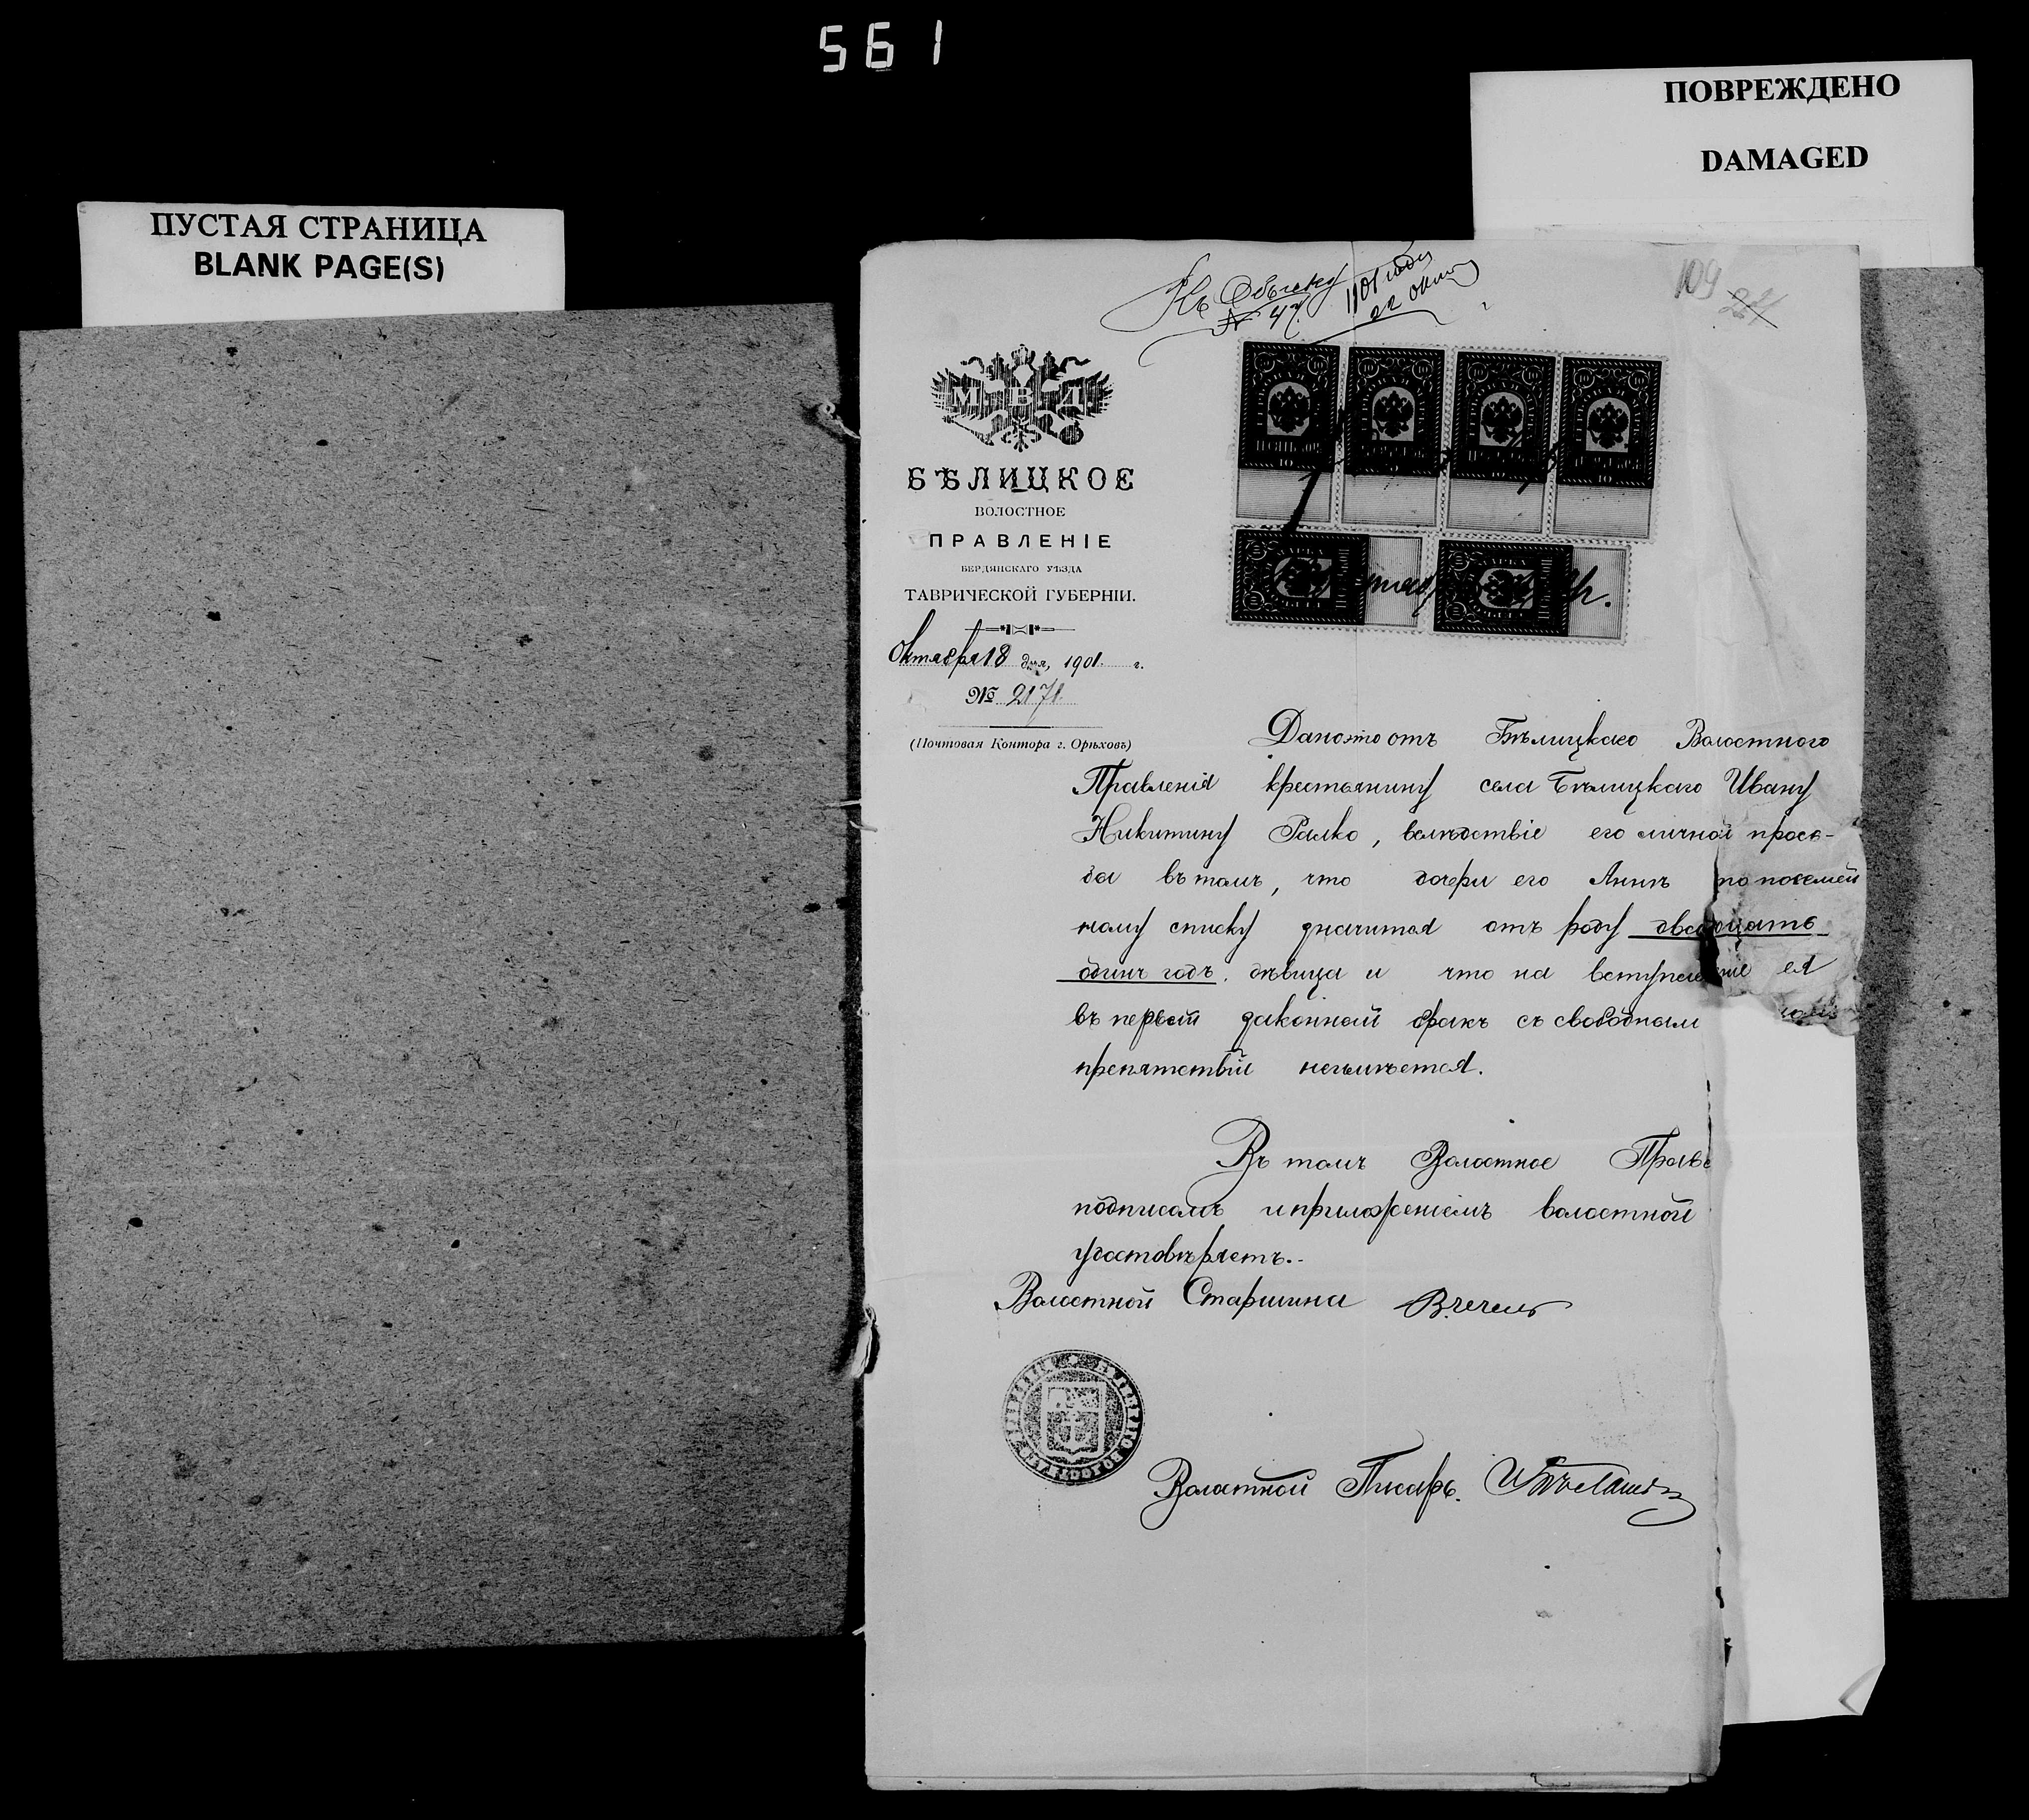 561
ПОВРЕЖДЕНО
DAMAGED
ПУСТАЯ СТРАНИЦА
BLANK PAGE(S)
Къ Обыску
№ 47. 1901 года
22 окт
109
221
М В Д
БѢЛИЦКОЕ
ВОЛОСТНОЕ
ПРАВЛЕНІЕ
БЕРДЯНСКАГО УѢЗДА
ТАВРИЧЕСКОЙ ГУБЕРНІИ.
Октября 18 дня, 1901 г.
№ 2171.
(Почтовая Контора г. Орѣховъ)
Дано это отъ Бѣлицкаго Волостного
Правленія крестьянину села Бѣлицкаго Ивану
Никитину Ралко, вслѣдствіе его личной прось-
бы въ томъ, что дочери его Аннѣ по посемей
ному списку значится отъ роду двадцать
одинъ годъ. дѣвица и что на вступленіе ея
въ первый законный бракъ съ свободнымъ
препятствій неимѣется.
Въ томъ Волостное Правл
подписомъ и приложеніемъ волостной
удостовѣряетъ.-
Волостной Старшина
Волостной Писарь.